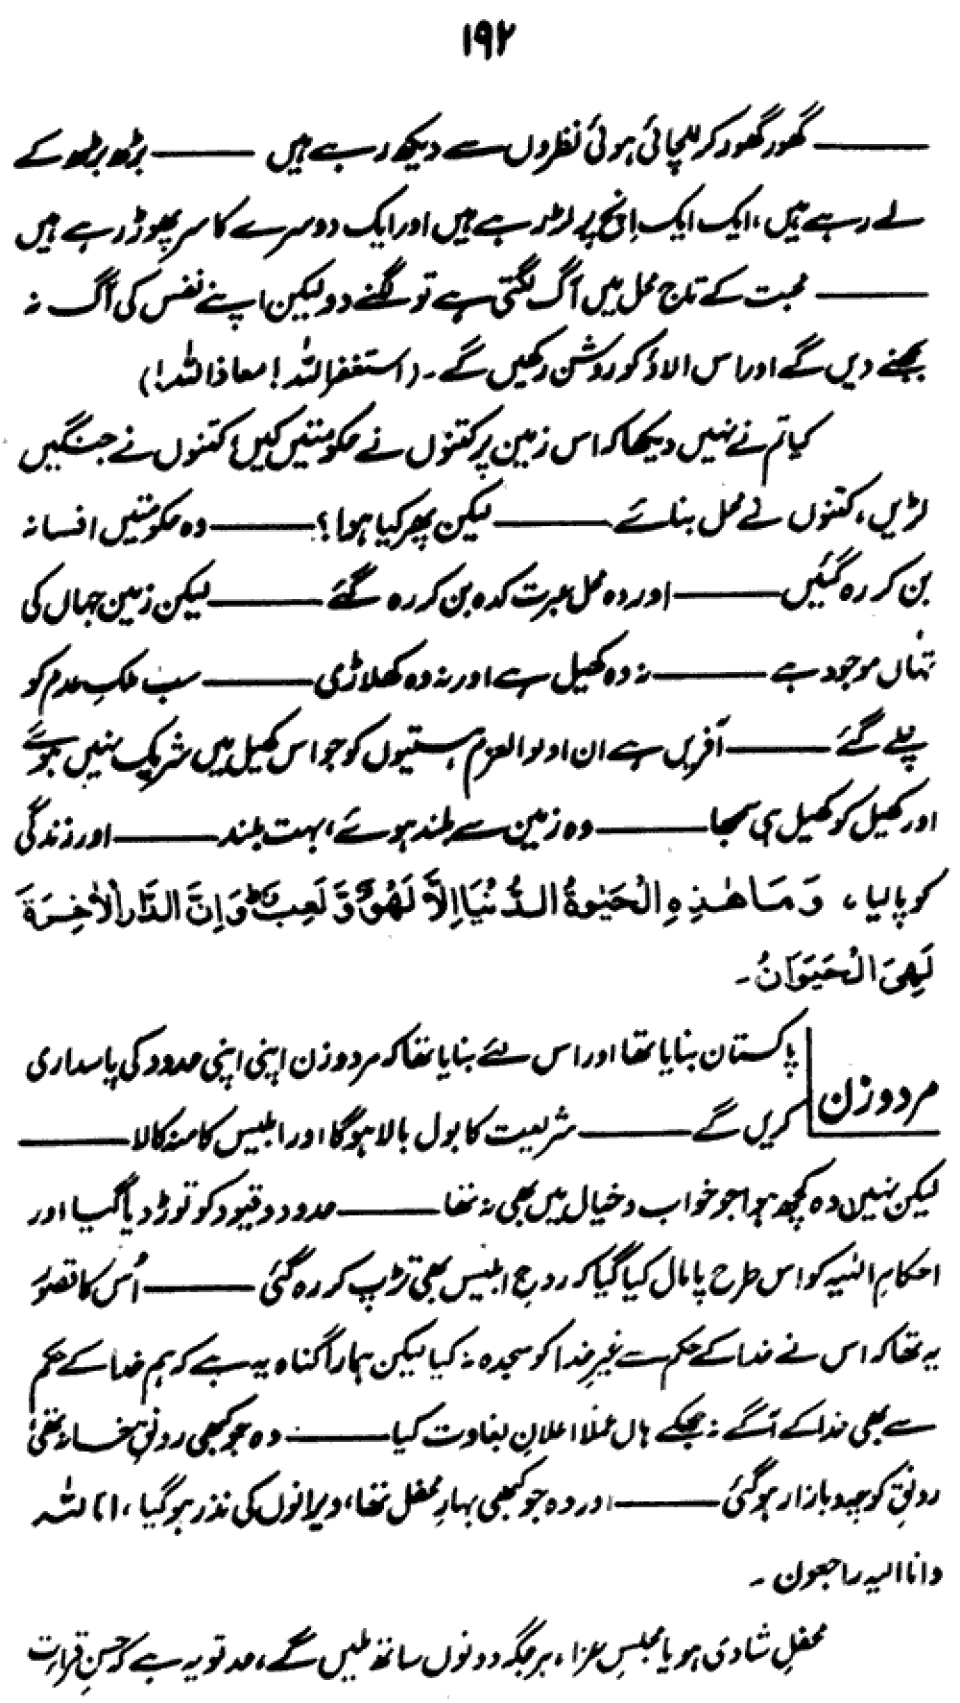 ۱۹۲
——— گھور گھور کر للچائی ہوئی نظروں سے دیکھ رہے ہیں ——— بڑھ بڑھ کے
لے رہے ہیں، ایک ایک اِنچ پر لڑ رہے ہیں اور ایک دوسرے کا سر پھوڑ رہے ہیں
——— محبت کے تاج محل میں آگ لگتی ہے تو لگنے دو لیکن اپنے نفس کی آگ نہ
بجھنے دیں گے اور اس الاؤ کو روشن رکھیں گے۔ (استغفراللہ! معاذ اللہ!)
کیا تم نے نہیں دیکھا کہ اس زمین پر کتنوں نے حکومتیں کیں، کتنوں نے جنگیں
لڑیں، کتنوں نے محل بنائے ——— لیکن پھر کیا ہوا؟ ——— وہ حکومتیں افسانہ
بن کر رہ گئیں ——— اور وہ محل عبرت کدہ بن کر رہ گئے ——— لیکن زمین جہاں کی
تہاں موجود ہے ——— نہ وہ کھیل ہے اور نہ وہ کھلاڑی ——— سب ملکِ عدم کو
چلے گئے ——— آفریں ہے ان اولوالعزم ہستیوں کو جو اس کھیل میں شریک نہیں ہوئے
اور کھیل کو کھیل ہی سمجھا ——— وہ زمین سے بلند ہوئے، بہت بلند ——— اور زندگی
کو پا لیا، وَمَا هٰذِهِ الْحَيٰوةُ الدُّنْيَا اِلَّا لَهْوٌ وَّ لَعِبٌ ؕ وَ اِنَّ الدَّارَ الْاٰخِرَةَ
لَهِيَ الْحَيَوَانُ۔
مرد و زن پاکستان بنایا تھا اور اس لئے بنایا تھا کہ مرد و زن اپنی اپنی حدود کی پاسداری
کریں گے ——— شریعت کا بول بالا ہوگا اور ابلیس کا منہ کالا ———
لیکن نہیں وہ کچھ ہوا جو خواب و خیال میں بھی نہ تھا ——— حدود و قیود کو توڑ دیا گیا اور
احکامِ الٰہیہ کو اس طرح پامال کیا گیا کہ روحِ ابلیس بھی تڑپ کر رہ گئی ——— اُس کا قصور
یہ تھا کہ اس نے خدا کے حکم سے غیرِ خدا کو سجدہ نہ کیا لیکن ہمارا گناہ یہ ہے کہ ہم خدا کے حکم
سے بھی خدا کے آگے نہ جھکے ہاں عملاً اعلانِ بغاوت کیا ——— وہ جو کبھی رونقِ خانہ تھی
رونقِ کوچہ و بازار ہوگئی ——— اور وہ جو کبھی بہارِ محفل تھا، ویرانوں کی نذر ہو گیا، انا للّٰہ
وانا الیہ راجعون۔
محفلِ شادی ہو یا مجلسِ عزا، ہر جگہ دونوں ساتھ ملیں گے، حد تو یہ ہے کہ حسنِ قراءت